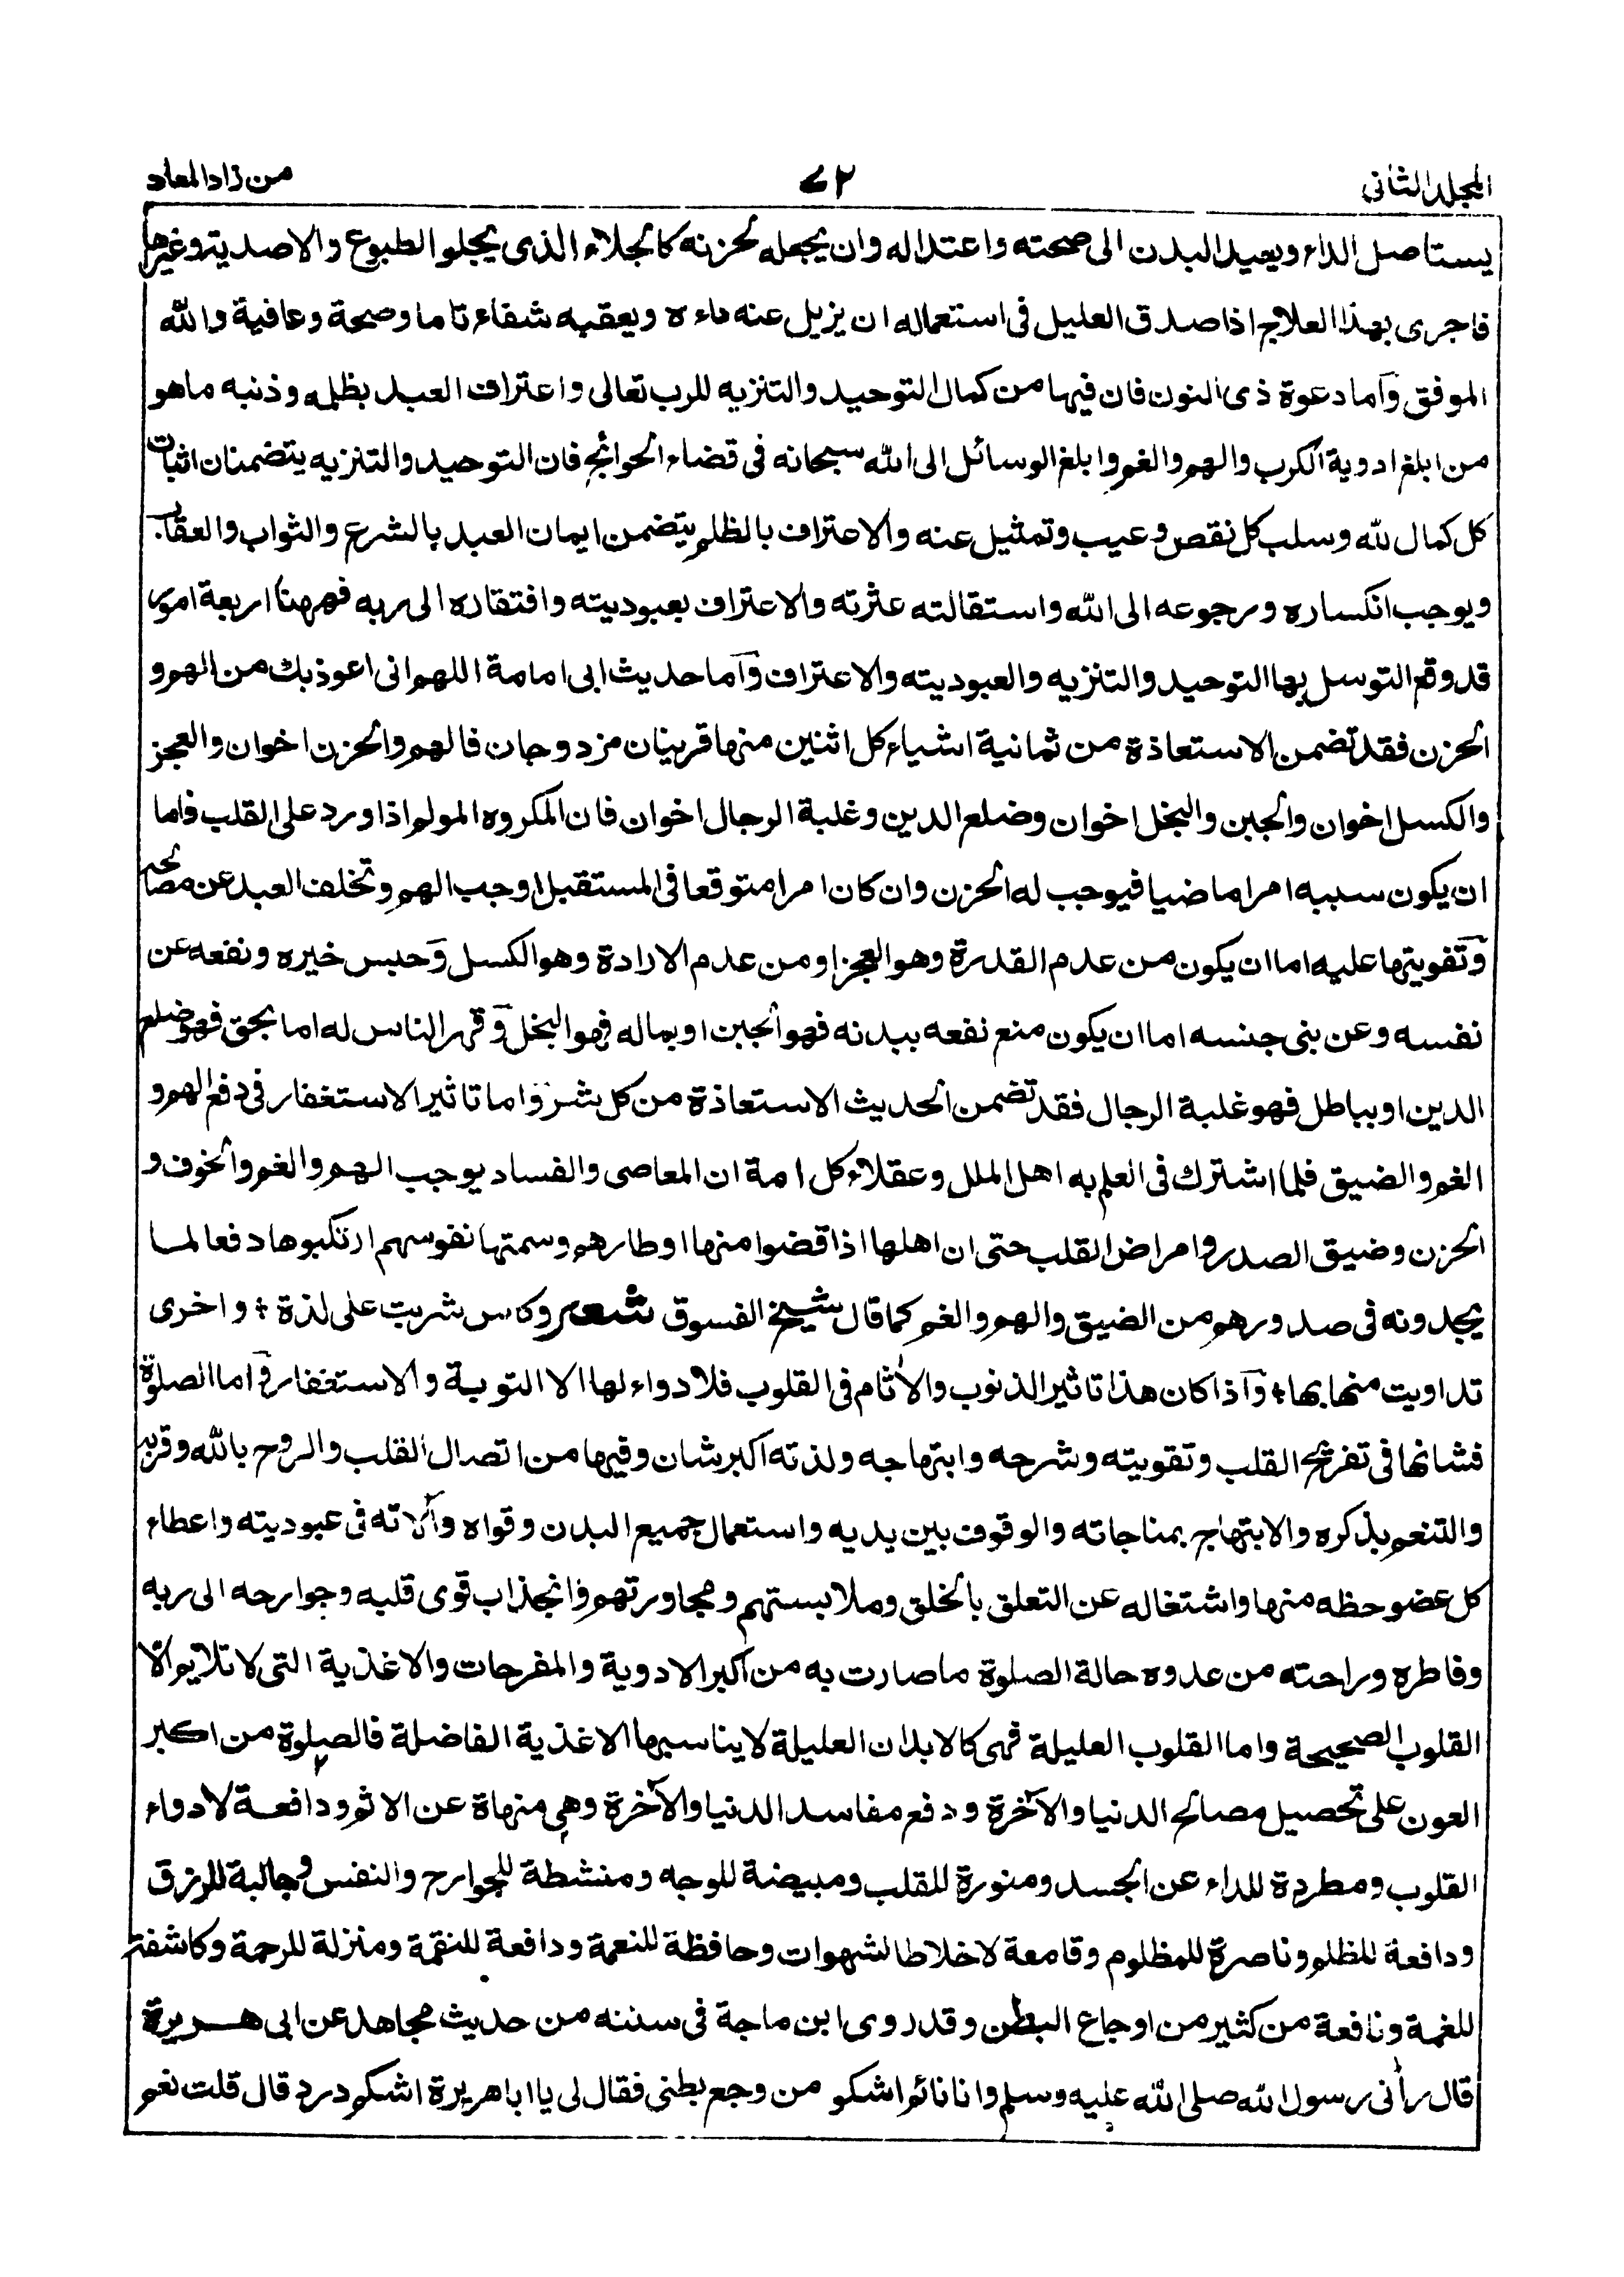 المجلد الثانی
٧٢
من زاد المعاد
يستاصل الداء ويعيد البدن الى صحته واعتداله وان يجعله لحزنه كالجلاء الذى يجلوا الطبوع والاصدية وغيرها
فاحرى بهذا العلاج اذا صدق العليل فى استعماله ان يزيل عنه داءه ويعقبه شفاء تاما وصحة وعافية والله
الموفق وآما دعوة ذى النون فان فيها من كمال التوحيد والتنزيه للرب تعالى واعتراف العبد بظلمه وذنبه ماهو
من ابلغ ادوية الكرب والهم والغم وابلغ الوسائل الى الله سبحانه فى قضاء الحوائج فان التوحيد والتنزيه يتضمنان اثبات
كل كمال لله وسلب كل نقص وعيب وتمثيل عنه والاعتراف بالظلم يتضمن ايمان العبد بالشرع والثواب والعقاب
ويوجب انكساره ورجوعه الى الله واستقالته عثرته والاعتراف بعبوديته وافتقاره الى ربه فههنا اربعة امور
قد وقع التوسل بها التوحيد والتنزيه والعبوديته والاعتراف وآما حديث ابى امامة اللهم انى اعوذ بك من الهم و
الحزن فقد تضمن الاستعاذة من ثمانية اشياء كل اثنين منها قرينان مزدوجان فالهم والحزن اخوان والعجز
والكسل اخوان والجبن والبخل اخوان وضلع الدين وغلبة الرجال اخوان فان المكروه المولم اذا ورد على القلب فاما
ان يكون سببه امرا ماضيا فيوجب له الحزن وان كان امرا متوقعا فى المستقبل اوجب الهم وتخلف العبد عن مصالحه
وتفويتها عليه اما ان يكون من عدم القدرة وهو العجز او من عدم الارادة وهو الكسل وحبس خيره ونفعه عن
نفسه وعن بنى جنسه اما ان يكون منع نفعه ببدنه فهو الجبن او بماله فهو البخل وقهر الناس له اما بحق فهو ضلع
الدين او بباطل فهو غلبة الرجال فقد تضمن الحديث الاستعاذة من كل شر واما تاثير الاستغفار فى دفع الهم و
الغم والضيق فلما اشترك فى العلم به اهل الملل وعقلاء كل امة ان المعاصى والفساد يوجب الهم والغم والخوف و
الحزن وضيق الصدر وامراض القلب حتى ان اهلها اذا قضوا منها اوطارهم وسمتها نفوسهم ارتكبوها دفعا لما
يجدونه فى صدورهم من الضيق والهم والغم كما قال شيخ الفسوق شعر وكاس شربت على لذة ؛ واخرى
تداويت منها بها ؛ وآذا كان هذا تاثير الذنوب والأثام فى القلوب فلا دواء لها الا التوبة والاستغفار وآما الصلوة
فشانها فى تفريح القلب وتقويته وشرحه وابتهاجه ولذته اكبر شان وفيها من اتصال القلب والروح بالله وقربه
والتنعم بذكره والابتهاج بمناجاته والوقوف بين يديه واستعمال جميع البدن وقواه وآلاته فى عبوديته واعطاء
كل عضو حظه منها واشتغاله عن التعلق بالخلق وملابستهم ومجاورتهم وانجذاب قوى قلبه وجوارحه الى ربه
وفاطره وراحته من عدوه حالة الصلوة ماصارت به من اكبر الادوية والمفرحات والاغذية التى لا تلايم الا
القلوب الصحيحة واما القلوب العليلة فهى كالابدان العليلة لايناسبها الاغذية الفاضلة فالصلوة من اكبر
العون على تحصيل مصالح الدنيا والآخرة ودفع مفاسد الدنيا والآخرة وهى منهاة عن الاثم ودافعة لادواء
القلوب ومطردة للداء عن الجسد ومنورة للقلب ومبيضة للوجه ومنشطة للجوارح والنفس وجالبة للرزق
ودافعة للظلم وناصرة للمظلوم وقامعة لاخلاط الشهوات وحافظة للنعمة ودافعة للنقمة ومنزلة للرحمة وكاشفة
للغمة ونافعة من كثير من اوجاع البطن وقد روى ابن ماجة فى سننه من حديث مجاهد عن ابى هريرة
قال رأنى رسول الله صلى الله عليه وسلم وانا نائم اشكو من وجع بطنى فقال لى يا ابا هريرة اشكم درد قال قلت نعم